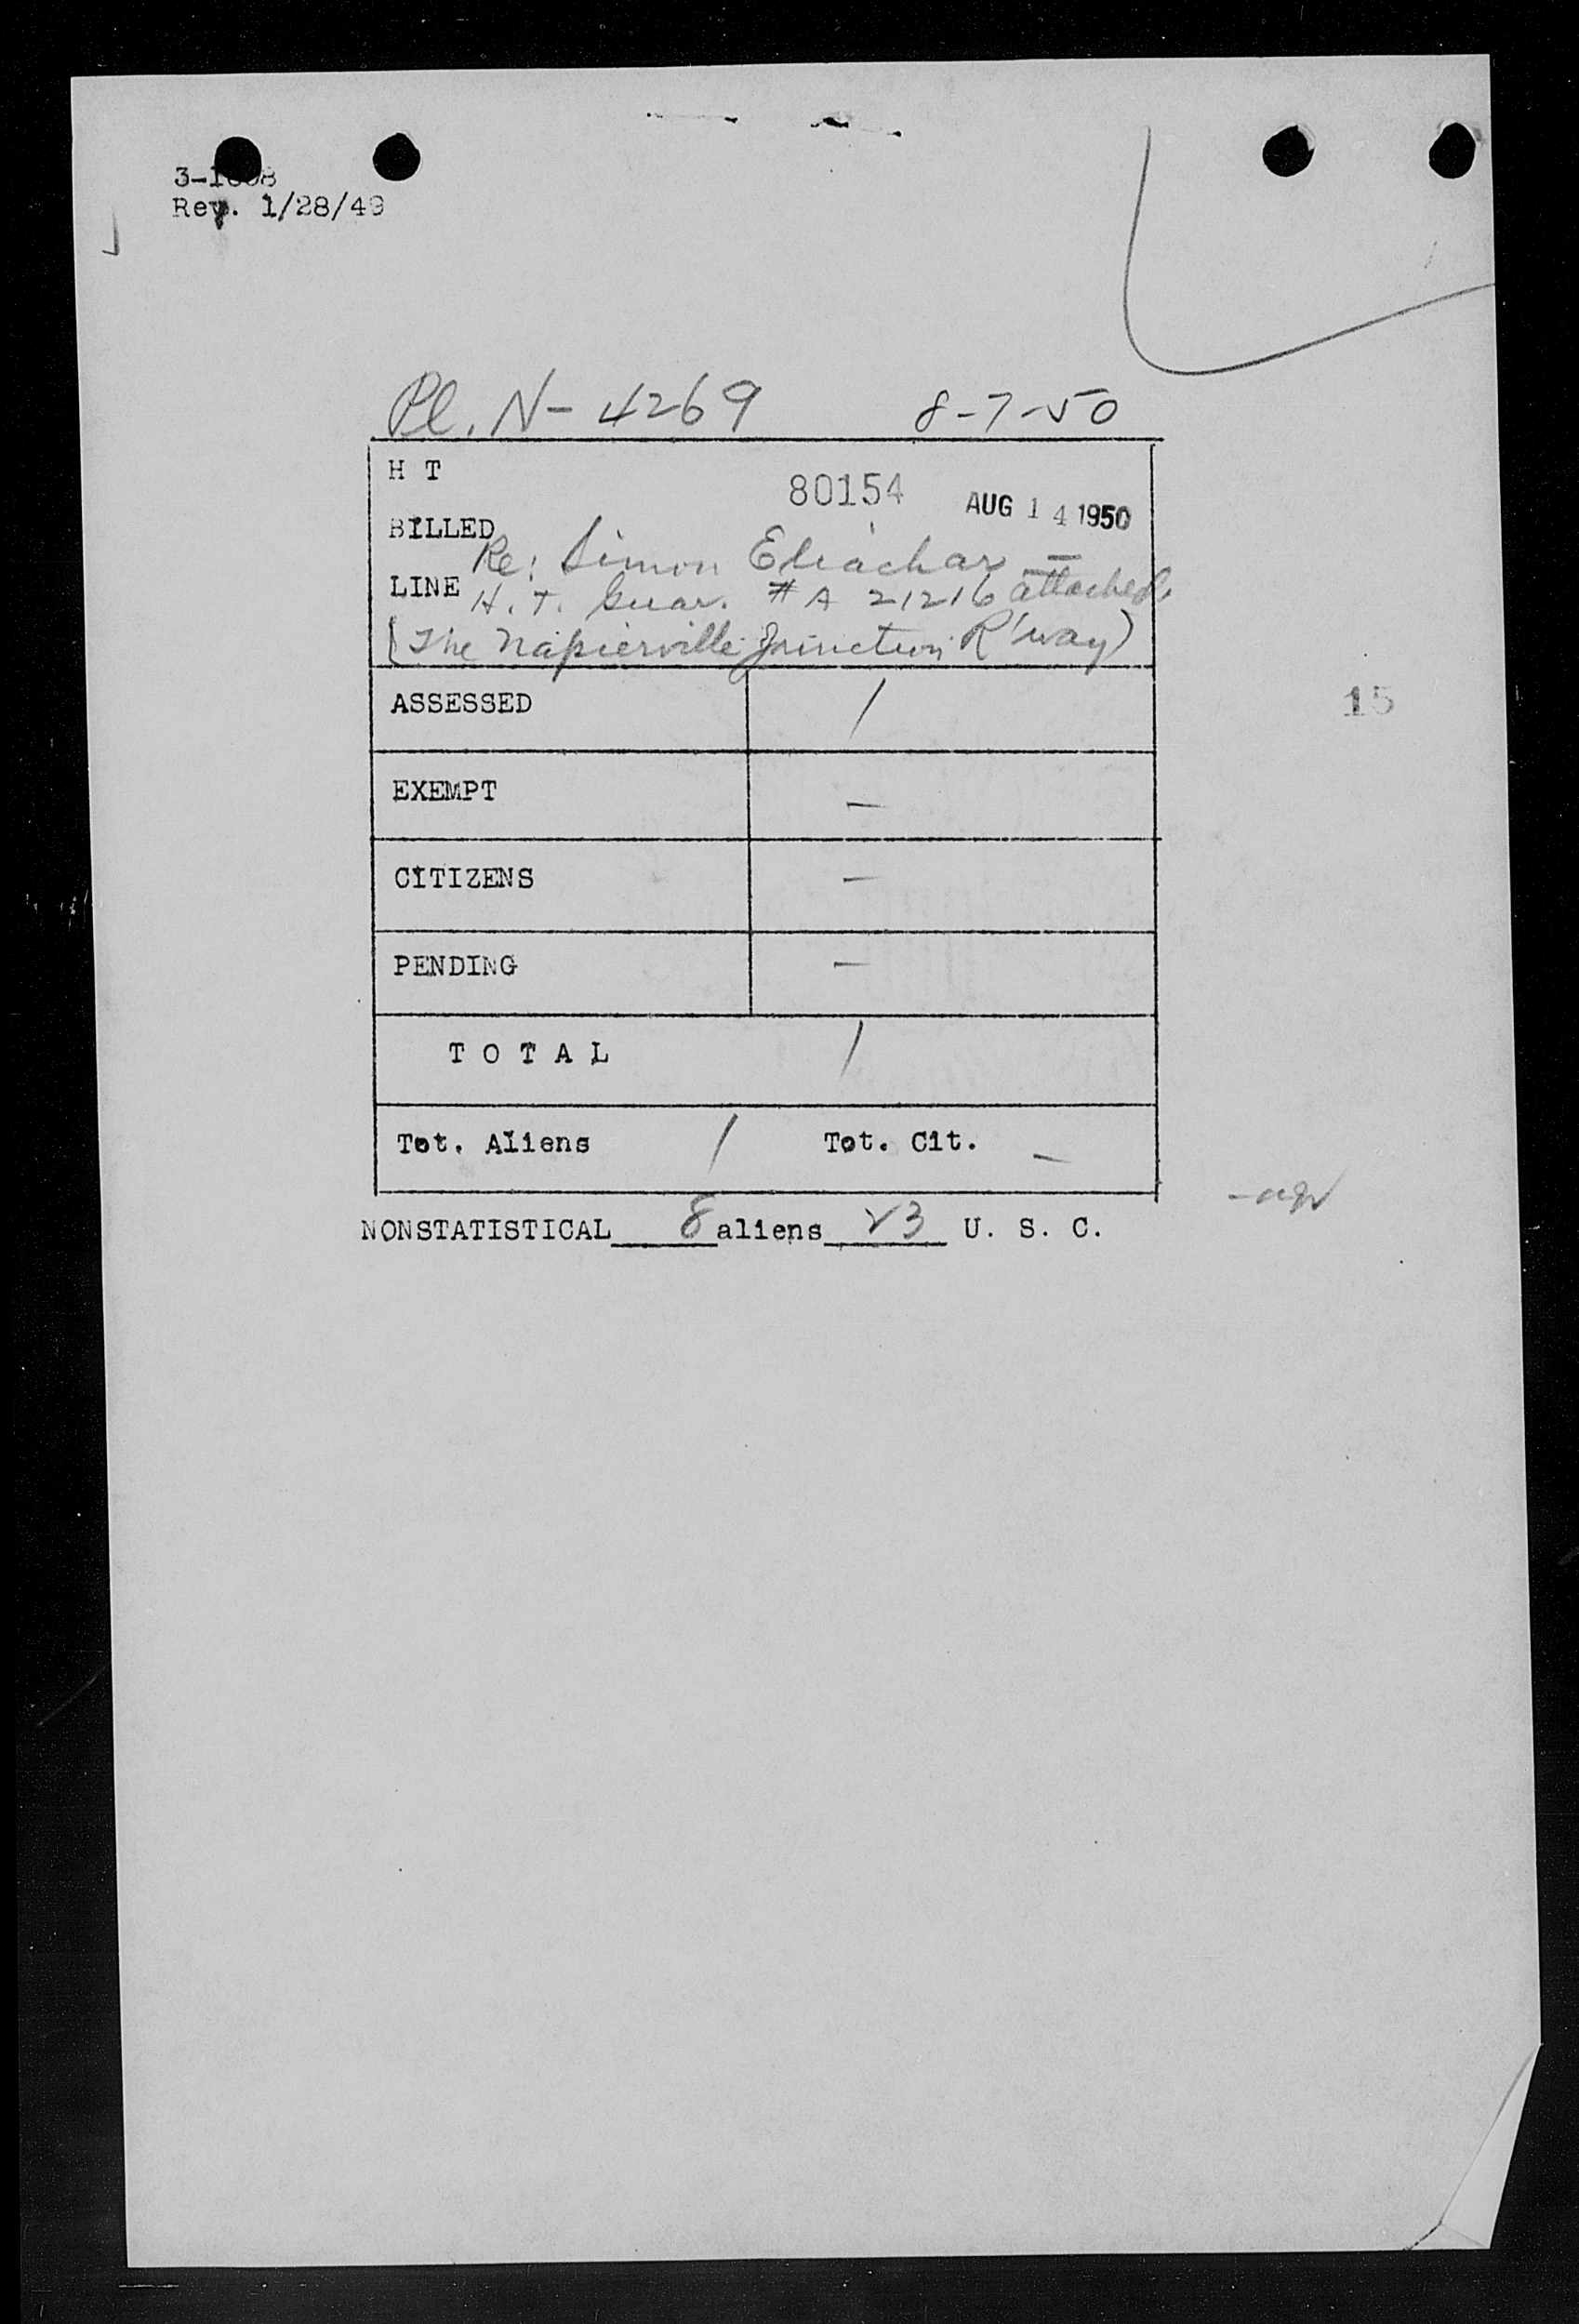 Rev. 1/28/49
Pl. N-4269 8-7-50
H T
80154 AUG 14 1950
BILLED
Re: Simon Eliachar —
LINE H. T. Guar. # A 21216 attached.
(The Napierville Junction R'way)
ASSESSED 1
EXEMPT —
CITIZENS —
PENDING —
TOTAL 1
Tot. Aliens 1 Tot. Cit. —
NONSTATISTICAL 8 aliens 23 U. S. C.
15